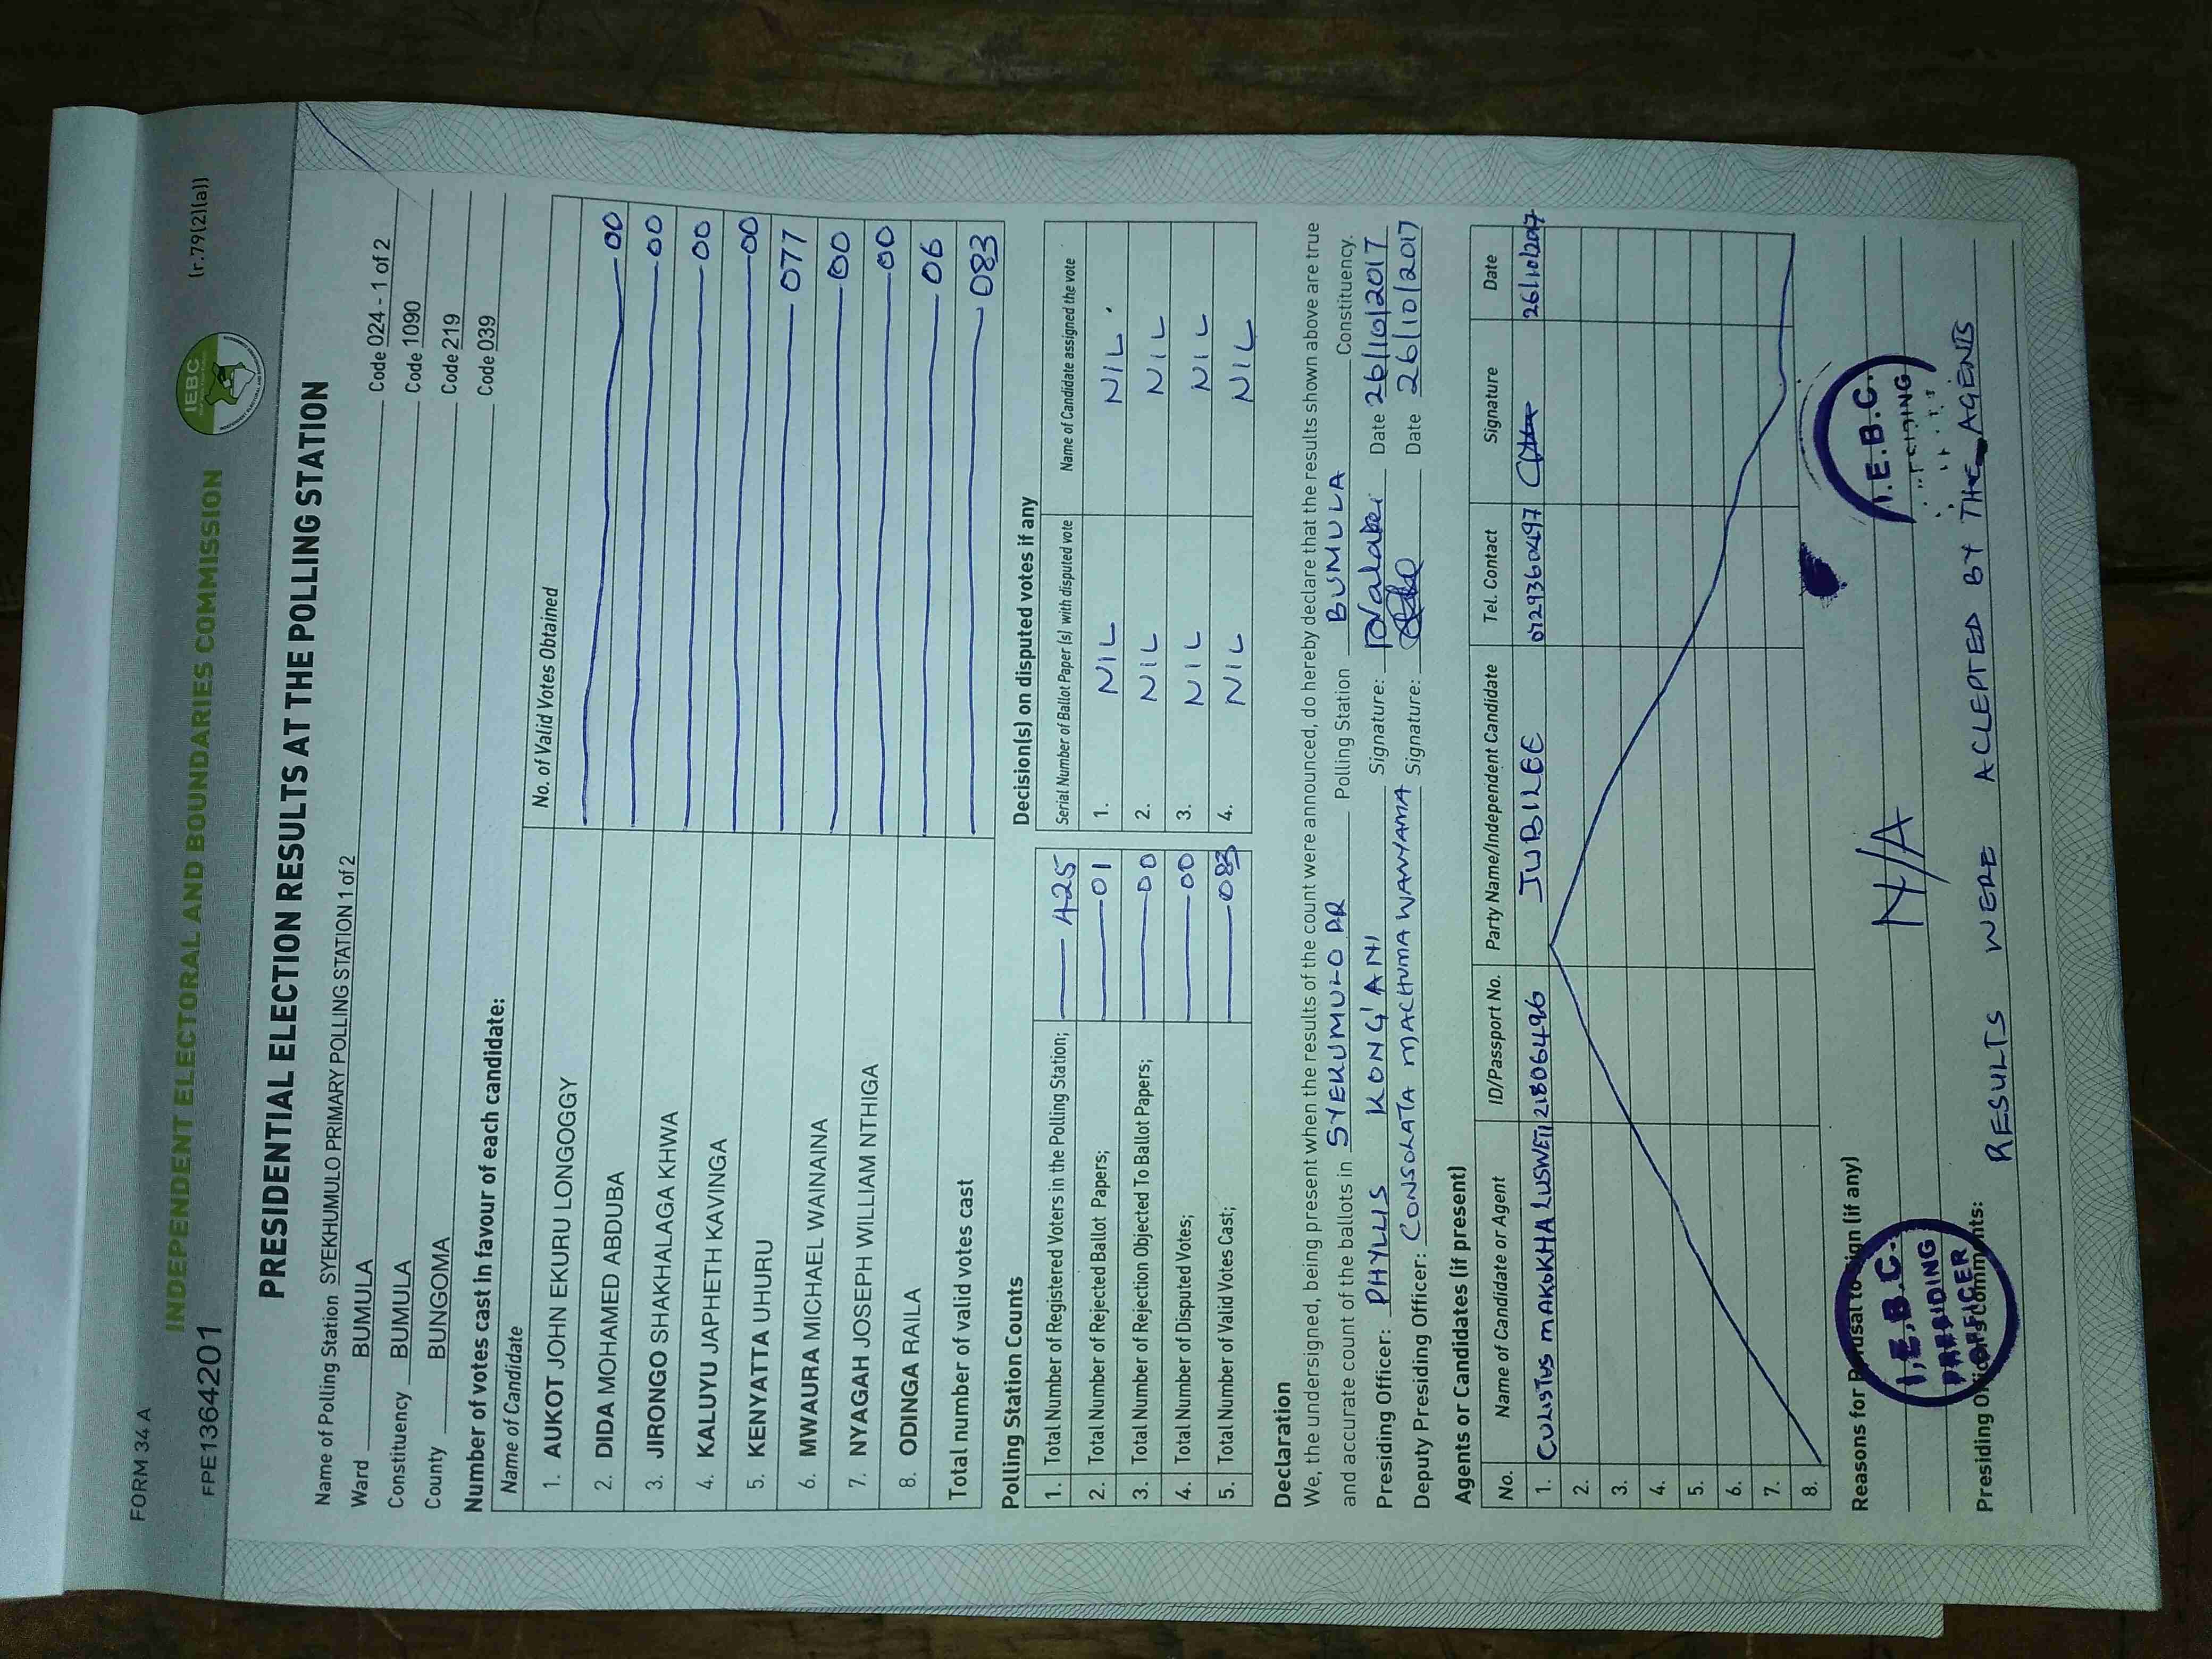 FORM 34 A
(r.79(2)(a))
IEBC
INDEPENDENT ELECTORAL AND BOUNDARIES COMMISSION
FPE1364201
PRESIDENTIAL ELECTION RESULTS AT THE POLLING STATION
Name of Polling Station SYEKHUMULO PRIMARY POLLING STATION 1 of 2 Code 024 - 1 of 2
Ward BUMULA Code 1090
Constituency BUMULA Code 219
County BUNGOMA Code 039
Number of votes cast in favour of each candidate:
Name of Candidate No. of Valid Votes Obtained
1. AUKOT JOHN EKURU LONGOGGY 00
2. DIDA MOHAMED ABDUBA 00
3. JIRONGO SHAKHALAGA KHWA 00
4. KALUYU JAPHETH KAVINGA 00
5. KENYATTA UHURU 077
6. MWAURA MICHAEL WAINAINA 00
7. NYAGAH JOSEPH WILLIAM NTHIGA 00
8. ODINGA RAILA 06
Total number of valid votes cast 083
Polling Station Counts
1. Total Number of Registered Voters in the Polling Station; 425
2. Total Number of Rejected Ballot Papers; 01
3. Total Number of Rejection Objected To Ballot Papers; 00
4. Total Number of Disputed Votes; 00
5. Total Number of Valid Votes Cast; 083
Decision(s) on disputed votes if any
Serial Number of Ballot Paper (s) with disputed vote Name of Candidate assigned the vote
1. NIL NIL
2. NIL NIL
3. NIL NIL
4. NIL NIL
Declaration
We, the undersigned, being present when the results of the count were announced, do hereby declare that the results shown above are true
and accurate count of the ballots in SYEKUMULO PR Polling Station BUMULA Constituency.
Presiding Officer: PHYLLIS KONG'ANI Signature: Date 26/10/2017
Deputy Presiding Officer: CONSOLATA MACHUMA WANYAMA Signature: Date 26/10/2017
Agents or Candidates (if present)
No. Name of Candidate or Agent ID/Passport No. Party Name/Independent Candidate Tel. Contact Signature Date
1. MAKOKHA LUSWETI 21806496 JUBILEE 0729360497 26/10/2017
2.
3.
4.
5.
6.
7.
8.
Reasons for Refusal to Sign (if any)
N/A
I.E.B.C.
PRESIDING
OFFICER
I.E.B.C.
Presiding Officer's Comments:
RESULTS WERE ACLEPTED BY THE AGENTS